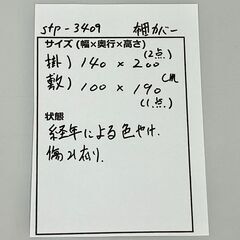 stp-3409 布団カバー
サイズ(幅×奥行×高さ)
掛) 140 × 200 (2点)
敷) 100 × 190 (1点)
状態
経年による色やけ.
傷み有り.